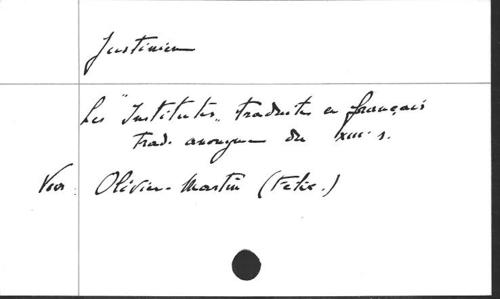 Justinien
Les "Institutes" traduites en français
trad. anonyme du XIIIe s.
Voir : Olivier-Martin (Félix.)